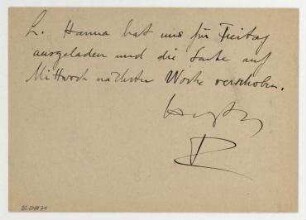 L. Hanna hat uns für Freitag
ausgeladen und die Sache auf
Mittwoch nächster Woche verschoben.